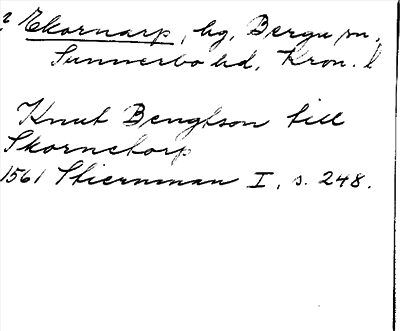 ? Ekornarp, by, Berga sn,
Sunnerbo hd, Kron. l
Knut Bengtson till
Skornetorp
1561 Stiernman I, s. 248.